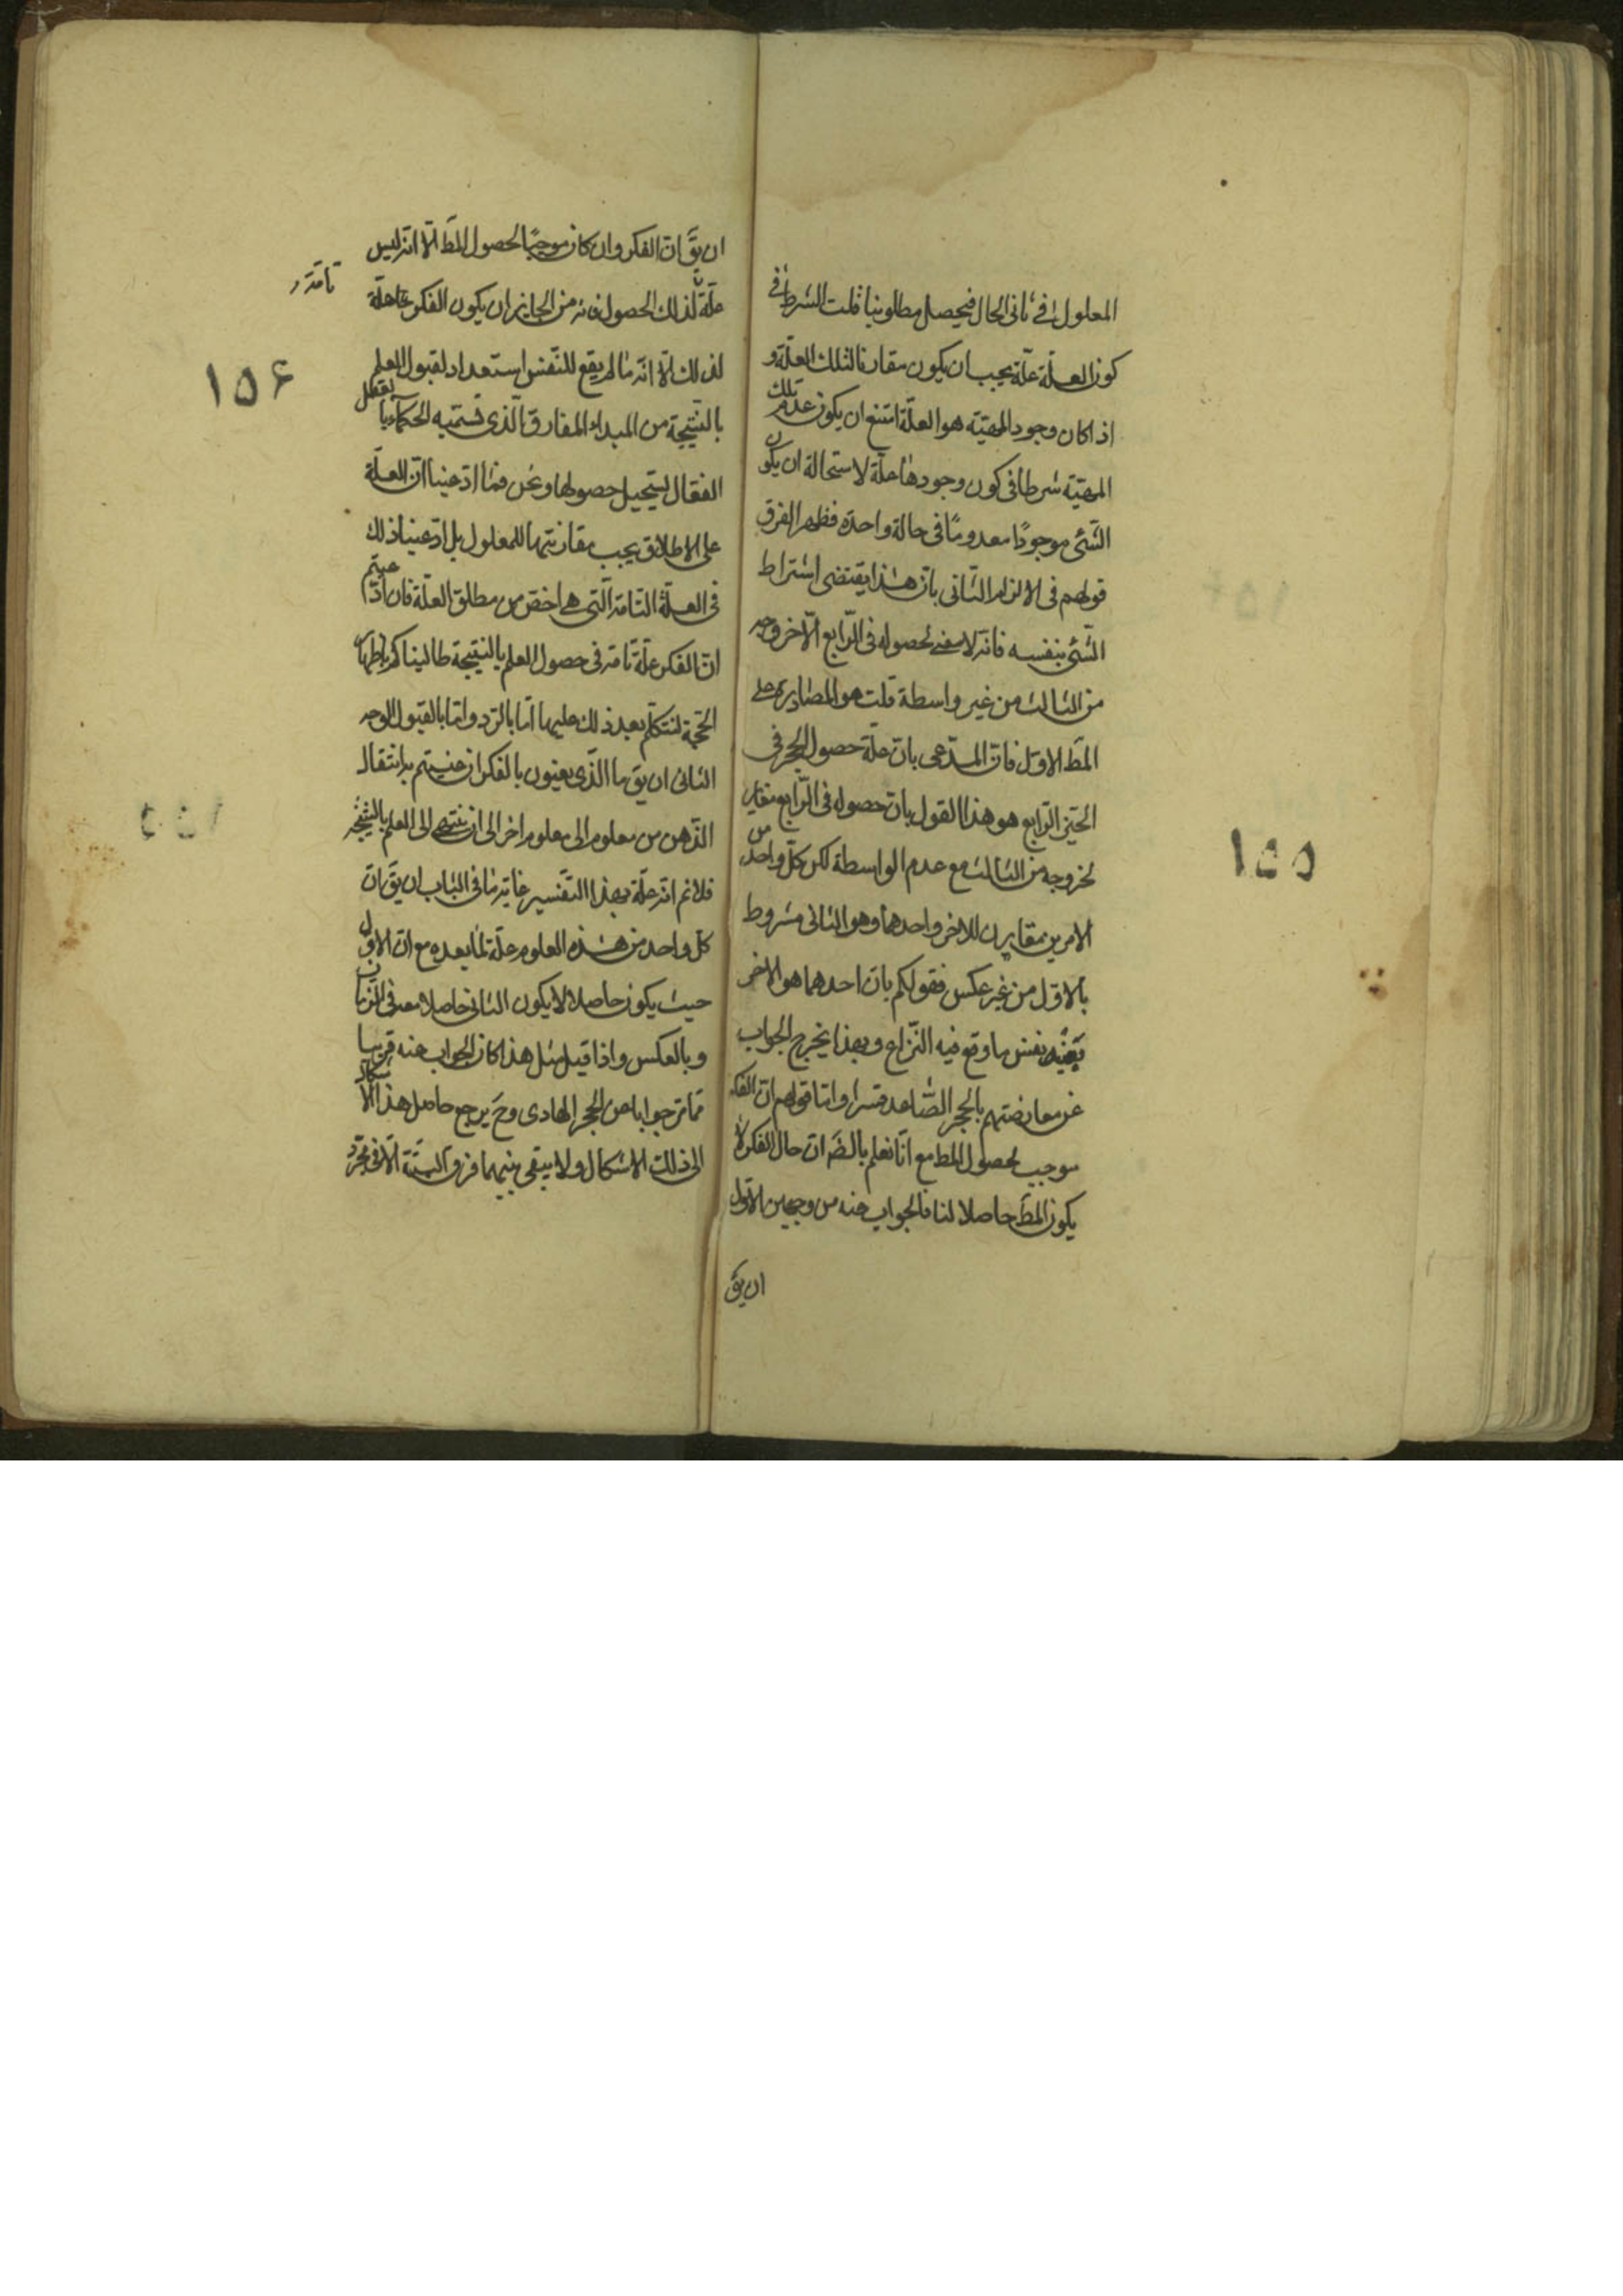 المعلول فى ثانى الحال فيحصل مطلوبنا قلت الشرط فى
كون العلة علة يجب ان يكون مقارنا لتلك العلة و
اذا كان وجود المهيّة هو العلّة امتنع ان يكون عدم تلك
المهيّة شرطا فى كون وجودها علّة لاستحالة ان يكون
الشّئ موجودًا معدومًا فى حالة واحدة فظهر الفرق
قولهم فى الالزام الثّانى بانّ هذا يقتضى اشتراط
الشّئ بنفسه فانّه لا معنى لحصوله فى الرّابع الّا خروجه
من الثالث من غير واسطة قلت هو المصادرة على
المطَ الاوّل فانّ المدّعى بانّ علّة حصول الحجر فى
الحيّز الرّابع هو هذا القول بانّ حصوله فى الرّابع مغاير
لخروجه من الثالث مع عدم الواسطة لكن كلّ واحد من
الامرين مغاير للاخر واحدهما وهو الثانى مشروط
بالاوّل من غير عكس فقولكم بانّ احدهما هو الاخر
بعينه نفس ما وقع فيه النّزاع وبهذا يخرج الجواب
عن معارضتهم بالحجر الصّاعد قسرا وامّا قولهم انّ الفكر
موجب لحصول المط مع انّا نعلم بالضَ انّ حال الفكر لا
يكون المطَ حاصلا لنا فالجواب عنه من وجهين الاوّل
ان يقَ
١٥٥
ان يقَ انّ الفكر وان كان موجبًا لحصول المطَ الّا انّه ليس
علّة لذلك الحصول فانه من الجايز ان يكون الفكر علة
تامّة
لذلك الّا انّه ما لم يقع للنّفس استعداد لقبول العلم
بالنّتيجة من المبداء المفارق الّذى تسمّيه الحكماء بالعقل
الفعّال يستحيل حصولها ونحن فما ادّعينا انّ العلّة
على الاطلاق يجب مقارنتها للمعلول بل ادّعينا ذلك
فى العلّة التّامّة الّتى هى اخصّ من مطلق العلّة فان ادّعيتم
انّ الفكر علّة تامّة فى حصول العلم بالنّتيجة طالبناكم باظهار
الحجّة لنتكلّم بعد ذلك عليها امّا بالرّد وامّا بالقبول الوجه
الثانى ان يقَ ما الّذى يعنون بالفكر ان عنيتم به انتقال
الذّهن من معلوم الى معلوم اخر الى ان ينتهى الى العلم بالنّتيجة
فلا نم انّه علّة بهذا التّفسير غاية ما فى الباب ان يقَ انّ
كلّ واحد من هذه العلوم علّة لما بعده مع انّ الاوّل
حيث يكون حاصلا لا يكون الثانى حاصلا معه فى الزمان
وبالعكس واذا قيل مثل هذا كان الجواب عنه قريبا
ممّا مرّ جوابا عن الحجر الهادى وحَ يرجع حاصل هذا الاشكال
الى ذلك الاشكال ولا يبقى بينهما فرق البتّة الّا فى مجرّد
١٥۶